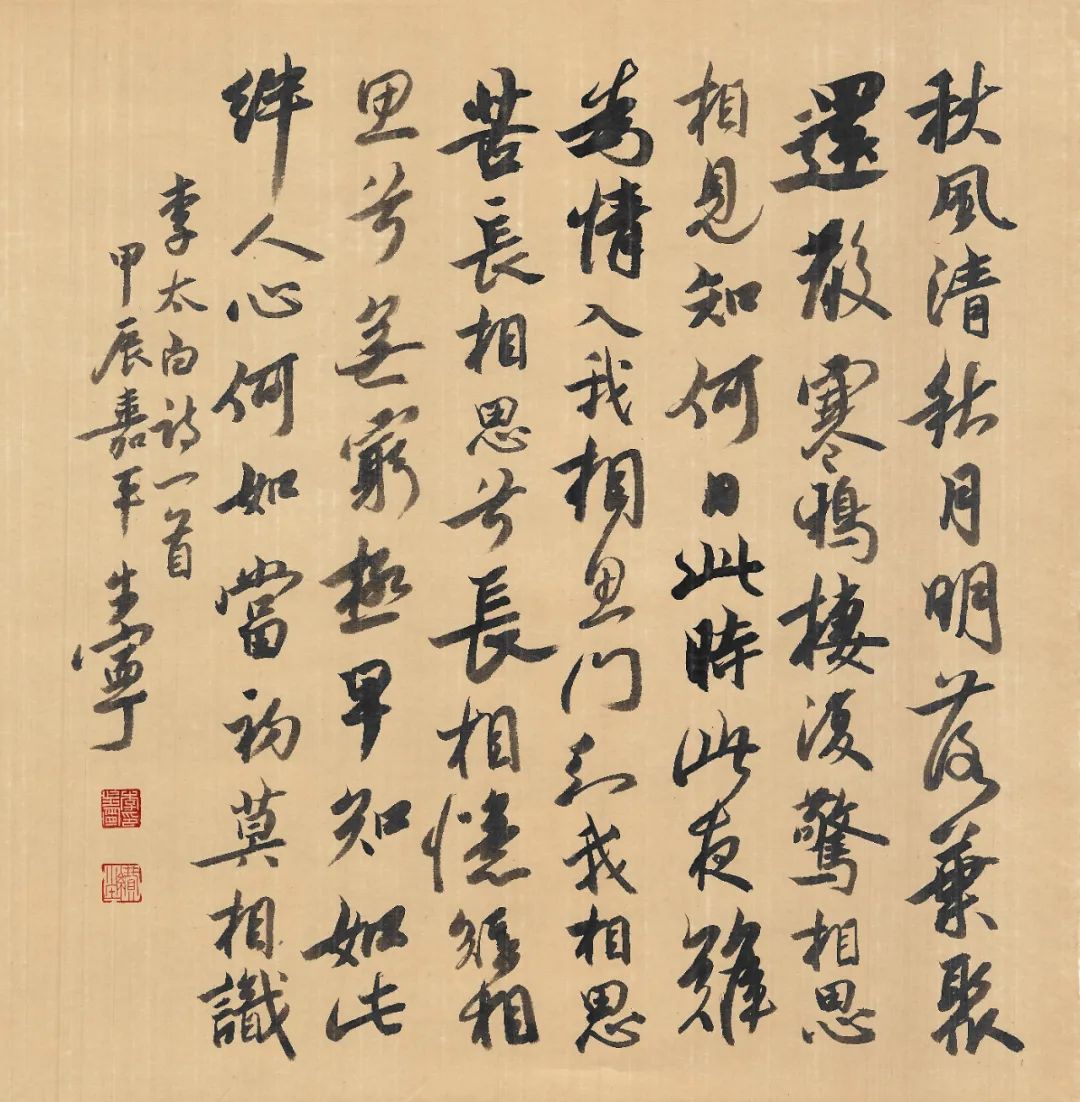 秋風清秋月明落葉聚
還散寒鴉棲復驚相思
相見知何日此時此夜難
為情入我相思門知我相思
苦長相思兮長相憶短相
思兮無窮極早知如此
絆人心何如當初莫相識
李太白詩一首
甲辰嘉平生寧